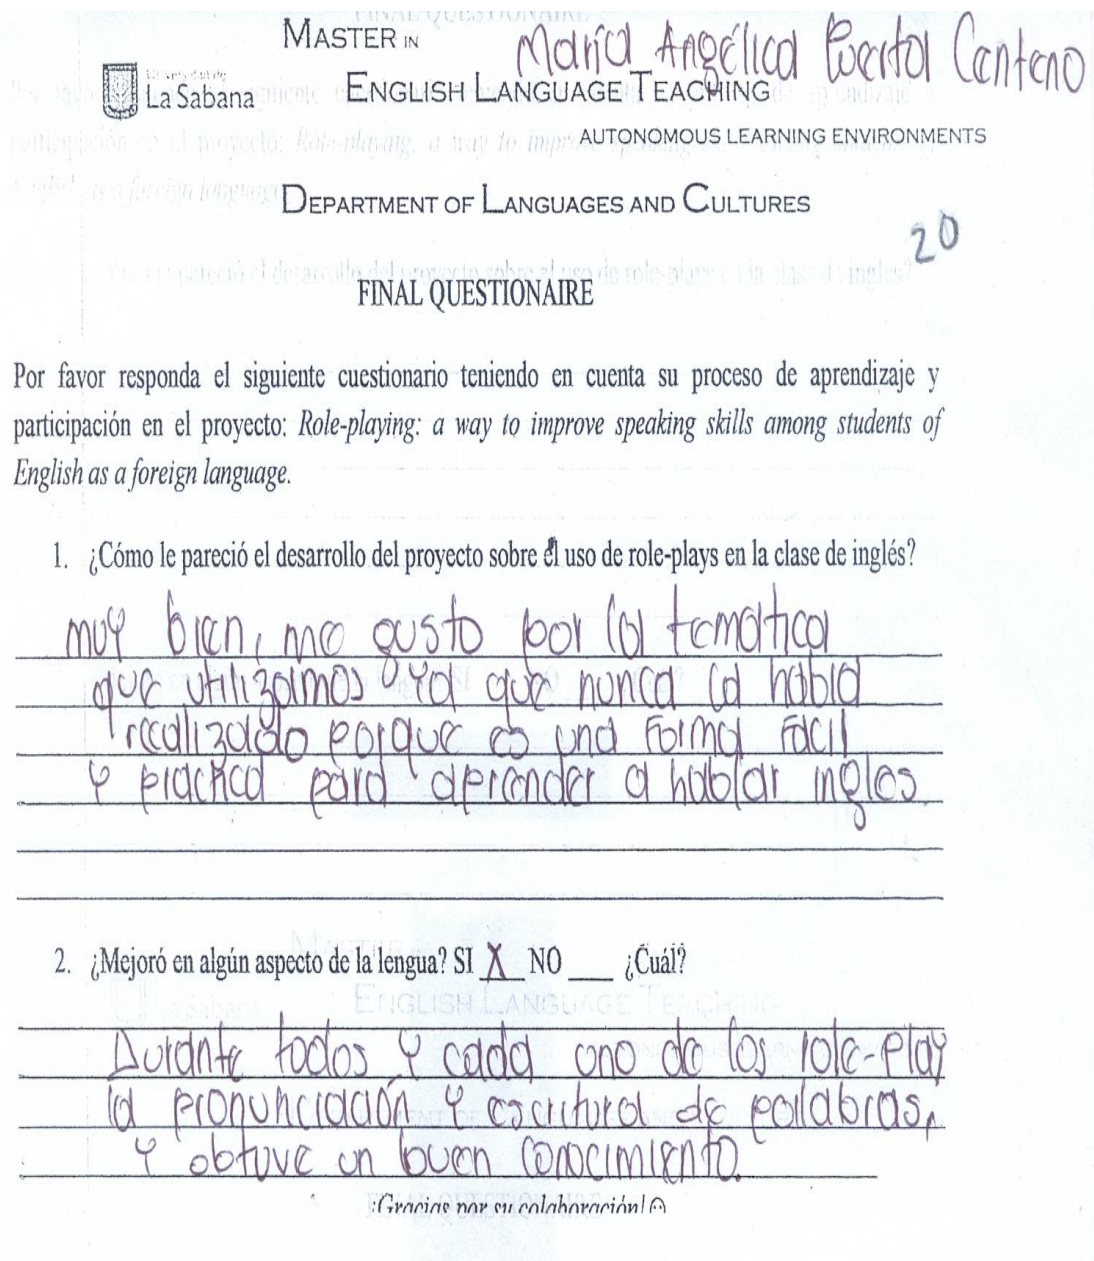 MASTER IN
María Angélica Puerta Centeno
Universidad de
La Sabana
ENGLISH LANGUAGE TEACHING
AUTONOMOUS LEARNING ENVIRONMENTS
DEPARTMENT OF LANGUAGES AND CULTURES
20
FINAL QUESTIONAIRE
Por favor responda el siguiente cuestionario teniendo en cuenta su proceso de aprendizaje y
participación en el proyecto: Role-playing: a way to improve speaking skills among students of
English as a foreign language.
1. ¿Cómo le pareció el desarrollo del proyecto sobre el uso de role-plays en la clase de inglés?
muy bien, me gusto por la tematica
que utilizamos ya que nunca la había
realizado porque es una Forma Fácil
y practica para aprender a hablar ingles.
2. ¿Mejoró en algún aspecto de la lengua? SI X NO ____ ¿Cuál?
Durante todos y cada uno de los role-Play
la pronunciación y escritura de palabras,
y obtuve un buen conocimiento.
¡Gracias por su colaboración!☺